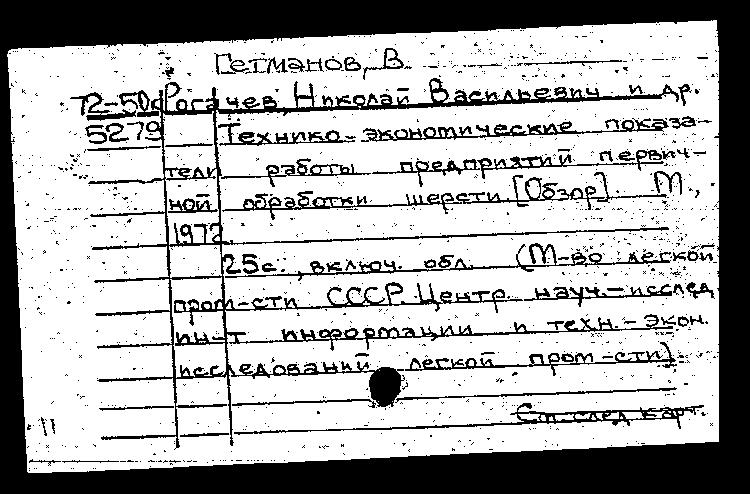 Гетманов, В.
72-50с Рогачев, Николай Васильевич и др.
5279 Технико-экономические показа-
тели работы предприятий первич-
ной обработки шерсти. [Обзор]. М.,
1972.
25с., включ. обл. (М-во легкой
пром-сти СССР. Центр. науч.-исслед.
ин-т информации и техн.-экон.
исследований легкой пром-сти).
См. след. карт.
11